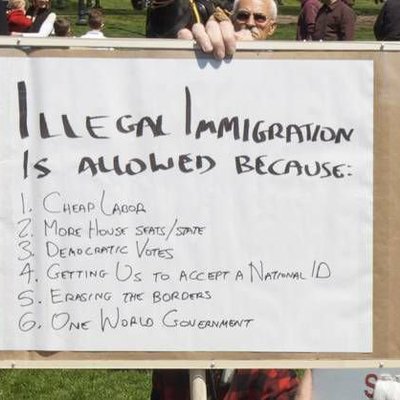 ILLEGAL IMMIGRATION
IS ALLOWED BECAUSE:
1. CHEAP LABOR
2. MORE HOUSE SEATS/STATE
3. DEMOCRATIC VOTES
4. GETTING US TO ACCEPT A NATIONAL ID
5. ERASING THE BORDERS
6. ONE WORLD GOVERNMENT